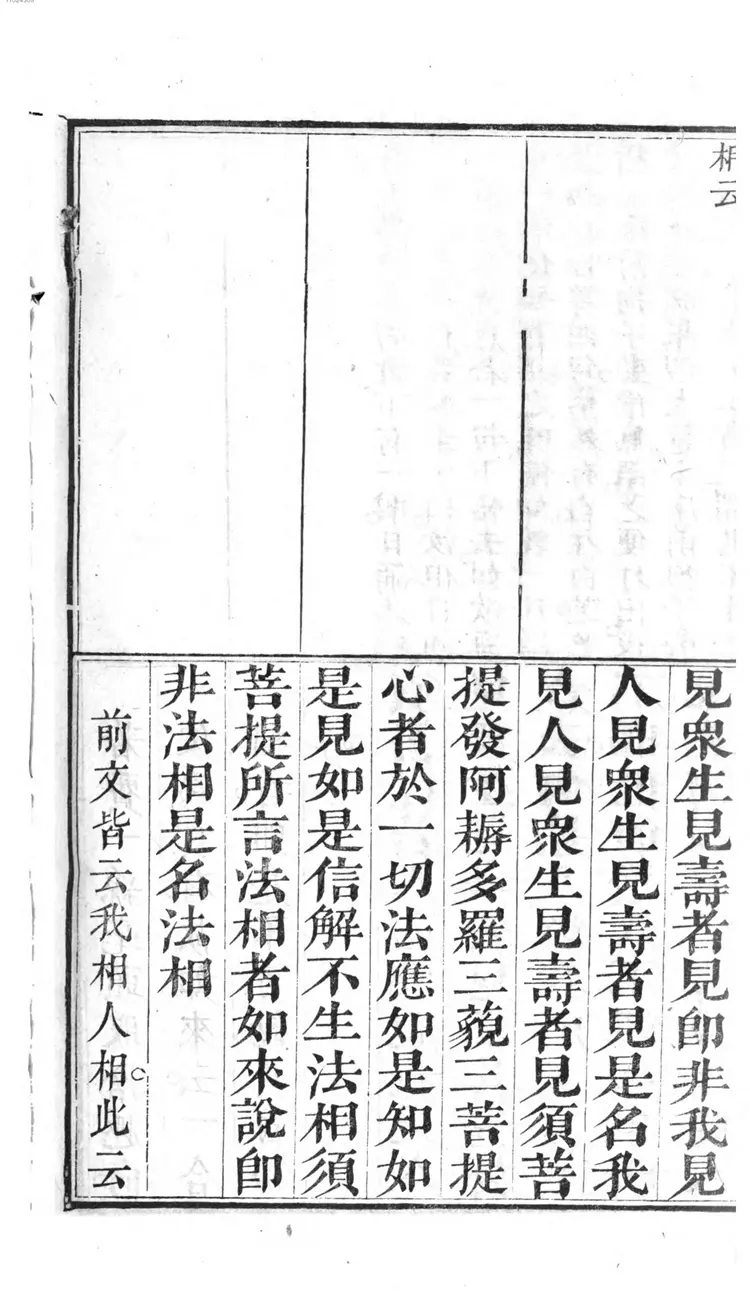 相云
見衆生見壽者見卽非我見
人見衆生見壽者見是名我
見人見衆生見壽者見須菩
提發阿耨多羅三藐三菩提
心者於一切法應如是知如
是見如是信解不生法相須
菩提所言法相者如來說卽
非法相是名法相
前文皆云我相人相此云